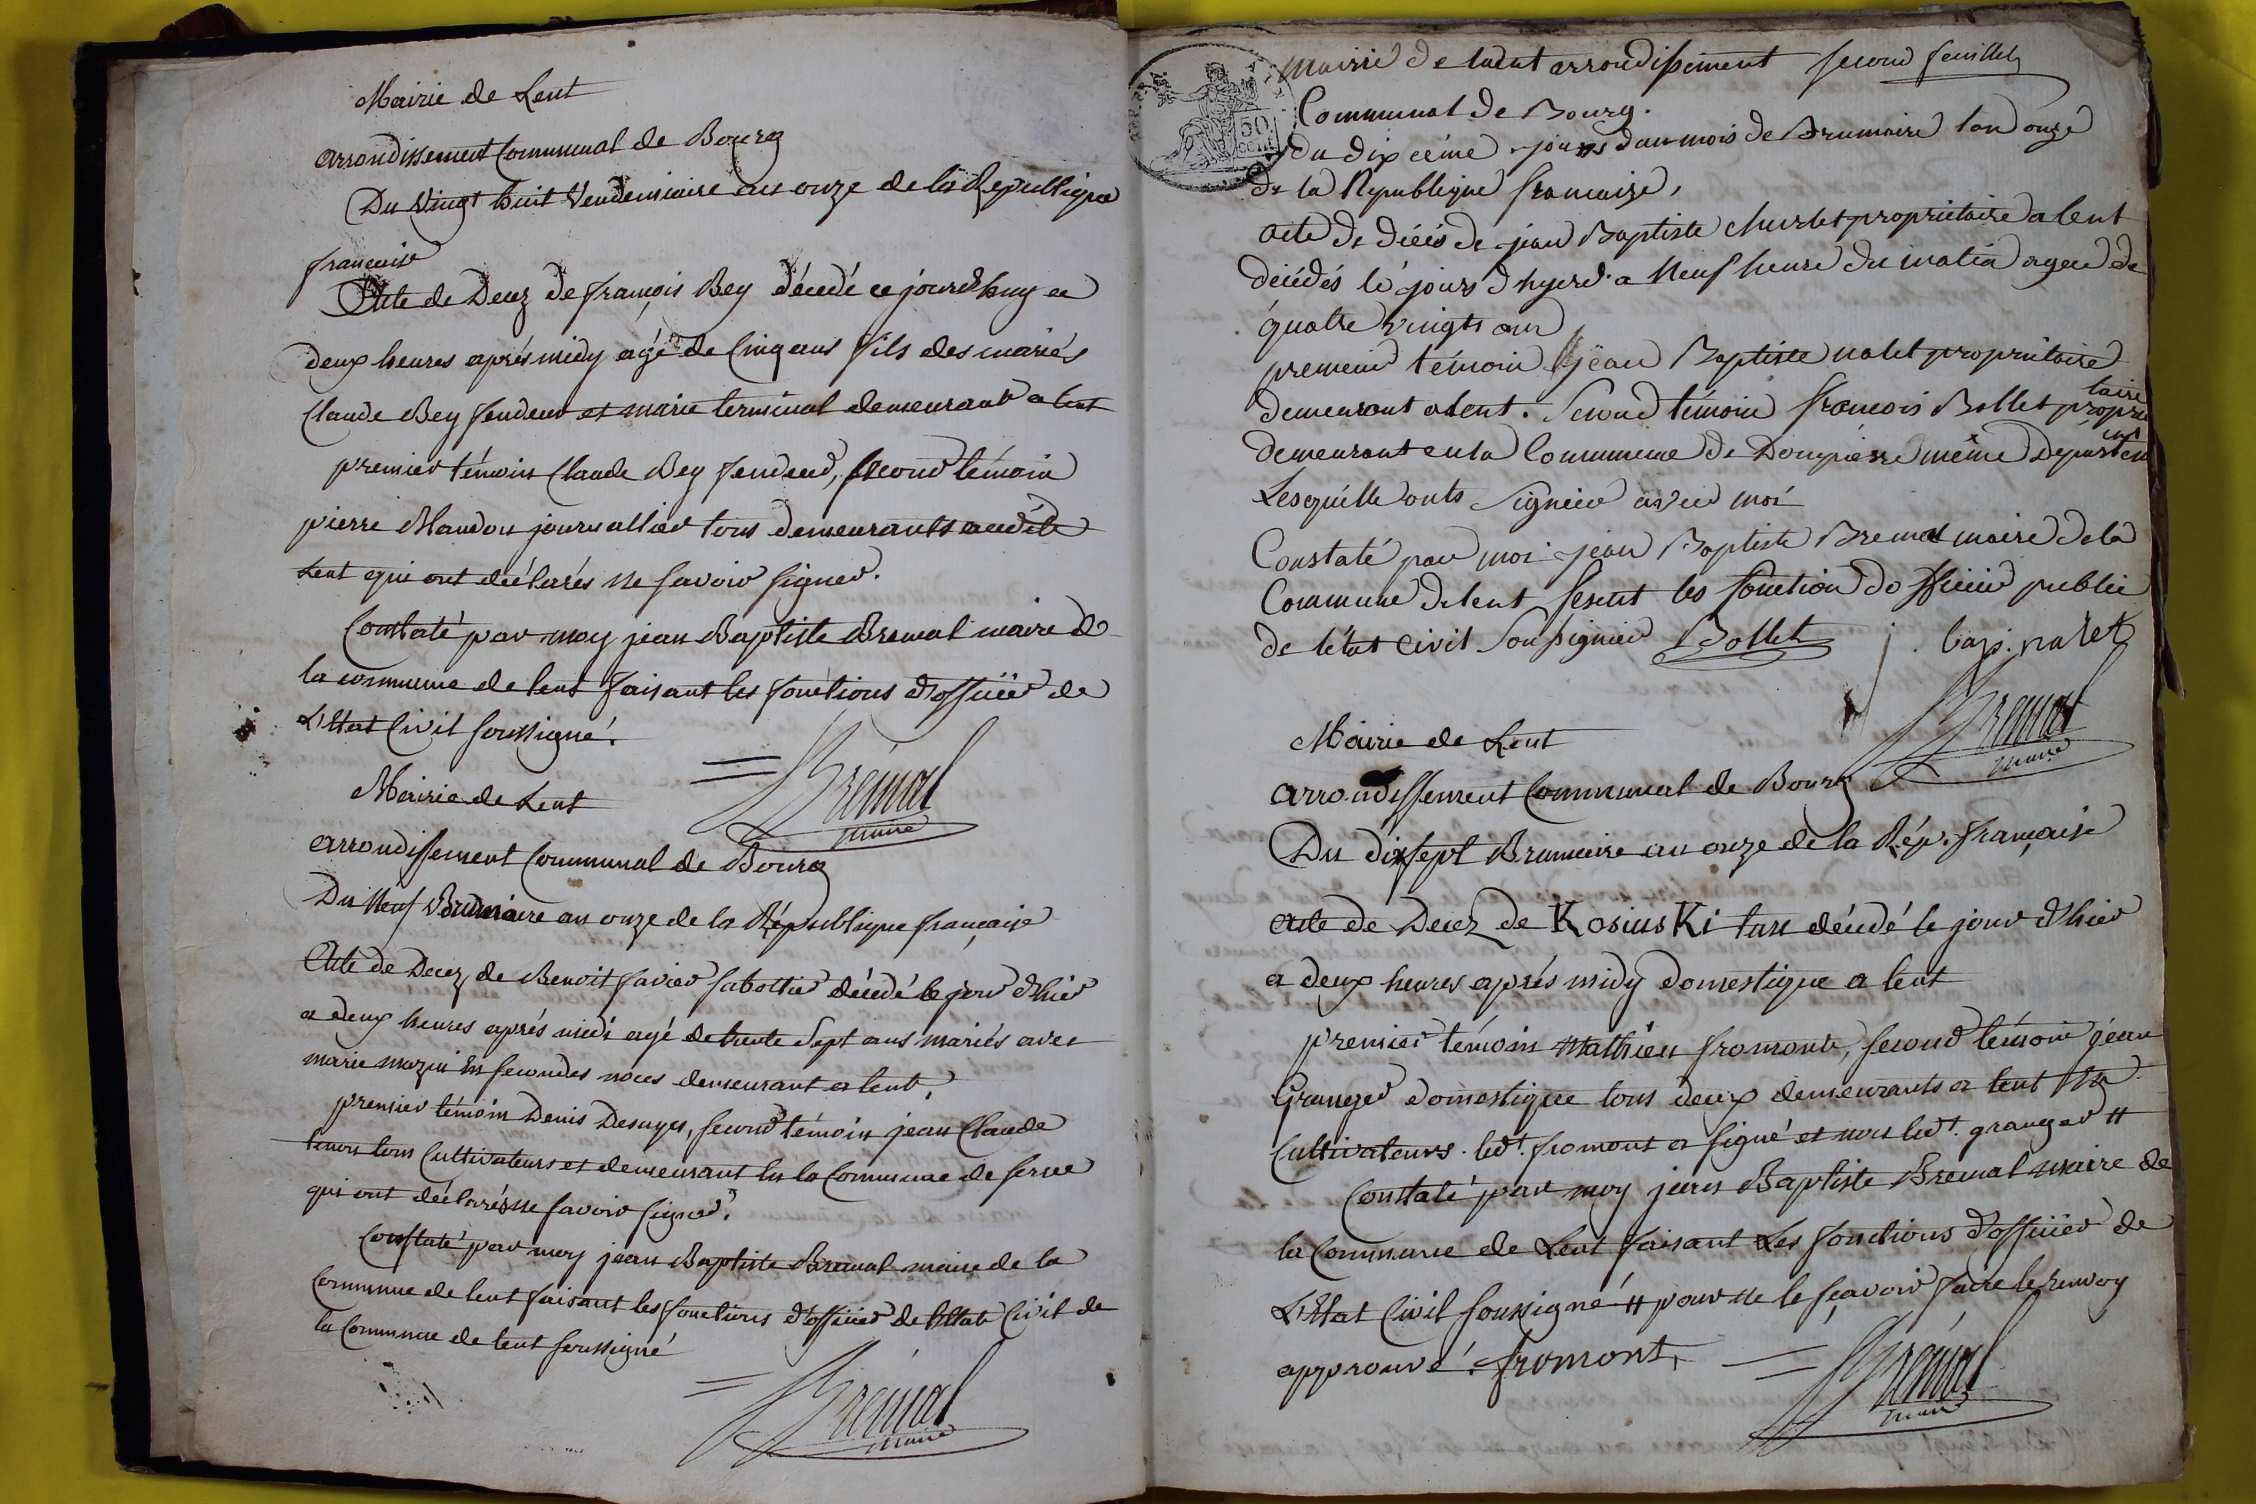 Mairie de Lent
arrondissement Communal de Bourg
Du Vingt huit Vendemiaire an onze de la Republique
française
Acte de Decez de françois Bey décédé ce jourd'huy a
deux heures aprés midy agé de Cinq ans fils des mariés
Claude Bey fendeur et marie terminal demeurant a lent
premier témoin Claude Bey fendeur, second témoin
pierre Blandon journallier tous demeurants audit
Lent qui ont déclarés ne savoir signer.
Constaté par moy jean Baptiste Brémal maire de
la commune de lent faisant les fonctions d'officier de
L'Etat Civil soussigné.
Brémal
maire
Mairie de Lent
arrondissement Communal de Bourg
Du Neuf Brumaire an onze de la République française
Acte de Decez de Benoit favier sabottier décédé le jour d'hier
a deux heures aprés midi agé de trente Sept ans mariés avec
marie mazui en secondes noces demeurant a lent,
premier témoin Denis Desuyes, second témoin jean Claude
tous Cultivateurs et demeurant en la Commune de servе
qui ont déclarés ne savoir signer.
Constaté par moy jean Baptiste Brémal maire de la
Commune de lent faisant les fonctions d'officier de l'Etat Civil de
la Commune de lent soussigné
Brémal
maire
Mairie de lent arrondissement second feuillet
Communal de Bourg.
50
CENT
du dixieme jours dun mois de Brumaire lan onze
de la Republique francaise,
acte de déces de jean Baptiste chevrlet propriétaire a lent
décédés le jours d hyerd a Neuf heure du matin agee de
quatre vingts ans
premeir témoin jean Baptiste nalet propriétaire
demeurant a lent. second témoin francois Bollet proprie
taire
demeurant en la Commune de Dompierre même Départem
ent
Lesquelle onts signier avec moi
Constaté par moi jean Baptiste Bremal maire de la
Commune de lent fesent les fonction dofficier public
de l'état Civil Soussignier Bollet j. bap. nalet
Brémal
maire
Mairie de Lent
arrondissement Communal de Bourg
Du dix sept Brumaire an onze de la Rép. française
acte de Decez de KosiusKi turc décédé le jour d'hier
a deux heures aprés midy domestique a lent
premier témoin Mathieu fromont, second témoin jean
Granger domestique tous deux demeurants a lent
Cultivateurs. ledt. fromont a signé et non ledt. granger #
Constaté par moy jean Baptiste Brémal maire de
la Commune de Lent faisant Les fonctions d'officier de
L'Etat Civil soussigné # pour ne le sçavoir faire le renvoy
approuvé. fromont,
Brémal
maire